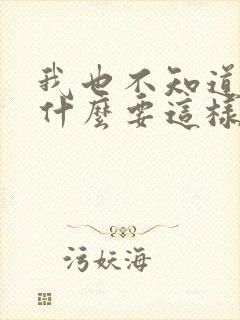 我也不知道
什麼要這樣
污妖海